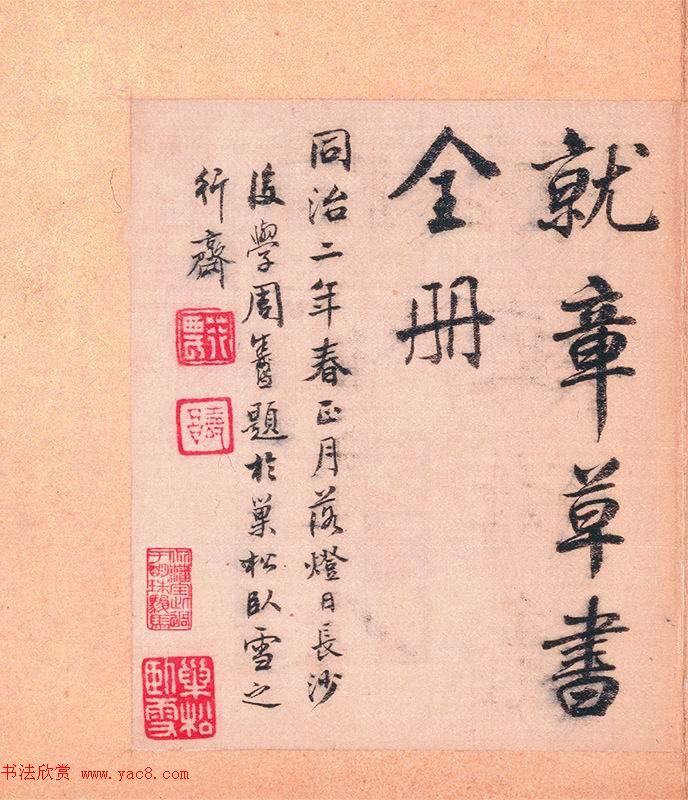 就章草書
全冊
同治二年春正月落燈日長沙
後學周題於巢松臥雪之
行齋
巢松臥雪
书法欣赏 www.yac8.com